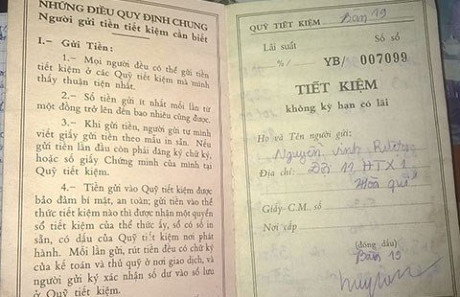 NHỮNG ĐIỀU QUY ĐỊNH CHUNG
Người gửi tiền tiết kiệm cần biết
I.— Gửi Tiền:
1.— Mọi người đều có thể gửi tiền
tiết kiệm ở các Quỹ Tiết kiệm mà mình
thấy thuận tiện nhất.
2.— Số tiền gửi ít nhất mỗi lần từ
một đồng trở lên đến bao nhiêu cũng được.
3.— Khi gửi tiền, người gửi tự mình
viết giấy gửi tiền theo mẫu in sẵn. Nếu
gửi tiền lần đầu còn phải đăng ký chữ ký,
hoặc số giấy Chứng minh của mình tại
Quỹ tiết kiệm.
4.— Tiền gửi vào Quỹ tiết kiệm được
bảo đảm bí mật, an toàn; gửi tiền vào thể
thức tiết kiệm nào thì được nhận một quyển
sổ tiết kiệm của thể thức ấy, sổ có số in
sẵn, có dấu của Quỹ tiết kiệm nơi phát
hành. Mỗi lần gửi, rút tiền đều có chữ ký
của kế toán và thủ quỹ ở nơi giao dịch, và
người gửi ký xác nhận số dư vào sổ lưu
ở Quỹ tiết kiệm.
QUỸ TIẾT KIỆM Bàn 19
Lãi suất Sổ số
%/ YB/ 007099
TIẾT KIỆM
không kỳ hạn có lãi
Họ và Tên người gửi:
Nguyễn
Địa chỉ: Đội 19 HTX 1
Hòa quý
Giấy C.M. số
Nơi cấp
(đóng dấu)
Bàn 19